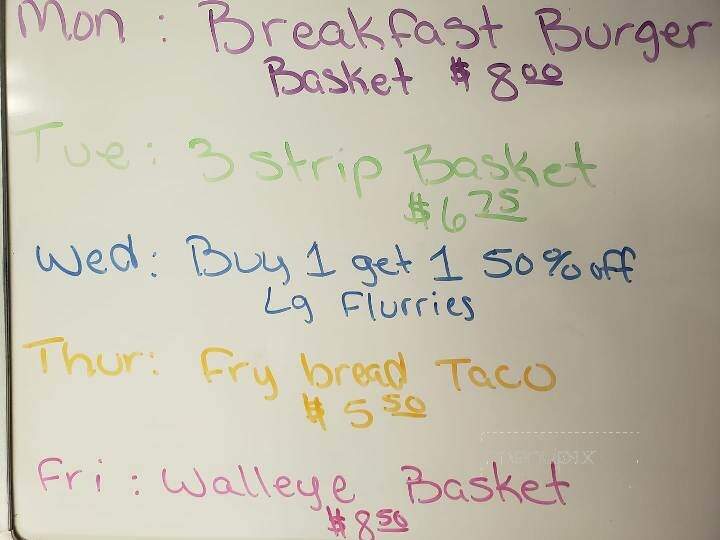 Mon : Breakfast Burger
Basket $ 8.00
Tue : 3 strip Basket
$6 75
Wed : Buy 1 get 1 50% off
Lg Flurries
Thur: Fry bread Taco
$ 5 50
Fri : Walleye Basket
$8 50